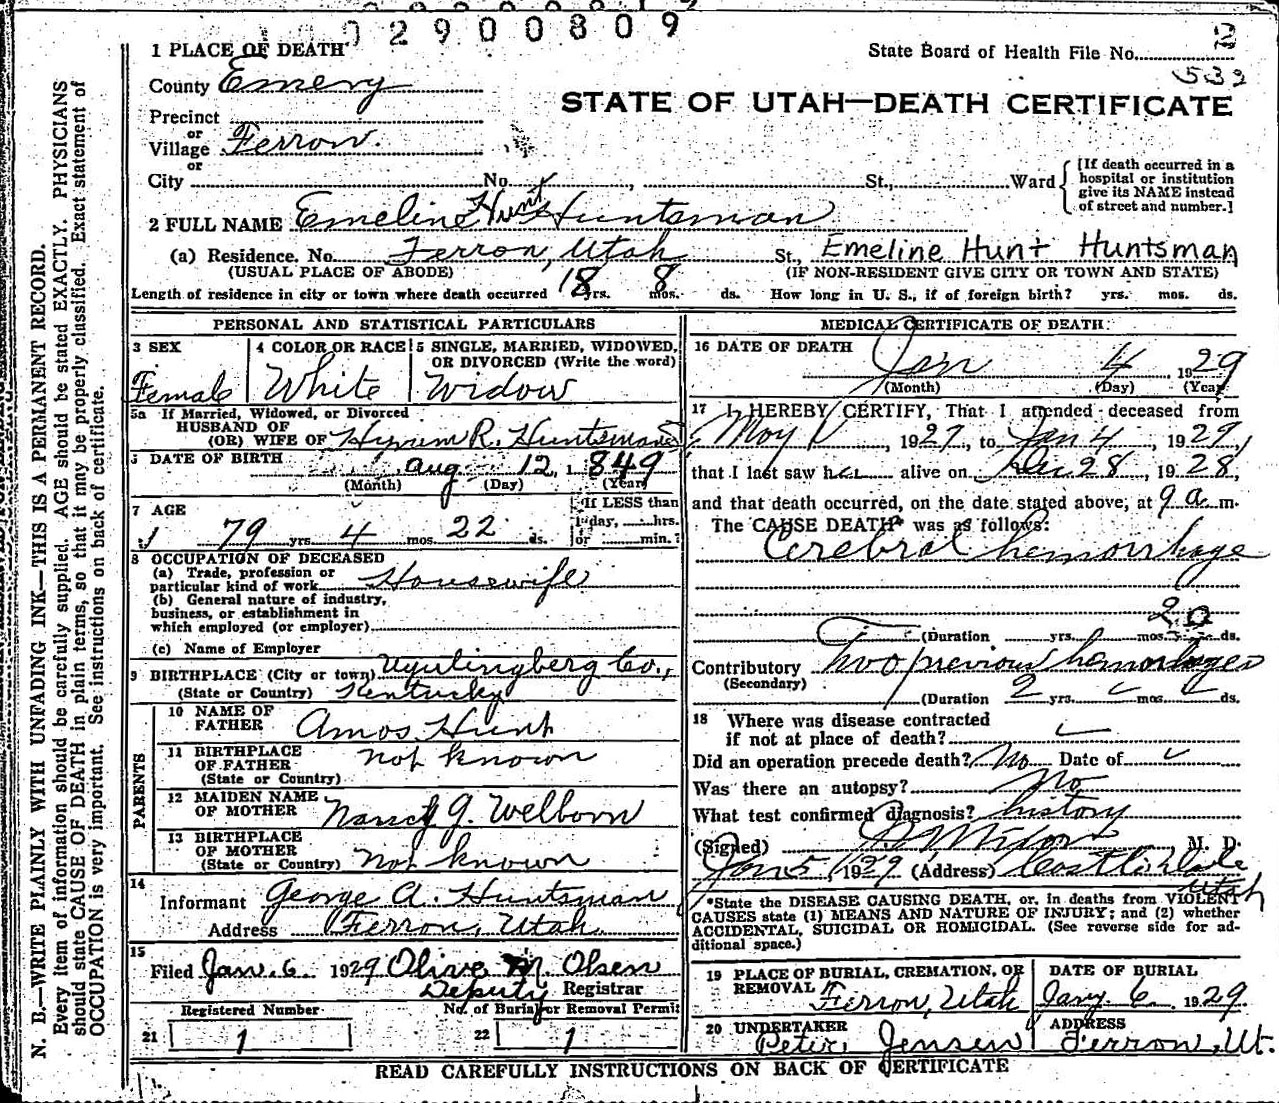 02900809
1 PLACE OF DEATH State Board of Health File No. 2
532
County Emery
STATE OF UTAH—DEATH CERTIFICATE
Precinct
or
Village Ferron.
or
City No. St., Ward
[If death occurred in a
hospital or institution
give its NAME instead
of street and number.]
2 FULL NAME Emeline Hunt Huntsman
(a) Residence. No. Ferron, Utah St., Emeline Hunt Huntsman
(USUAL PLACE OF ABODE) (IF NON-RESIDENT GIVE CITY OR TOWN AND STATE)
Length of residence in city or town where death occurred 18 yrs. 8 mos. ds. How long in U. S., if of foreign birth? yrs. mos. ds.
PERSONAL AND STATISTICAL PARTICULARS
3 SEX
Female
4 COLOR OR RACE
White
5 SINGLE, MARRIED, WIDOWED,
OR DIVORCED (Write the word)
Widow
5a If Married, Widowed, or Divorced
HUSBAND OF
(OR) WIFE OF Hyrum R. Huntsman
DATE OF BIRTH Aug 12, 1849
(Month) (Day) (Year)
7 AGE
79 yrs. 4 mos. 22 ds.
If LESS than
1 day, hrs.
or min.?
8 OCCUPATION OF DECEASED
(a) Trade, profession or
particular kind of work Housewife
(b) General nature of industry,
business, or establishment in
which employed (or employer)
(c) Name of Employer
9 BIRTHPLACE (City or town) Co.,
(State or Country) Kentucky
PARENTS
10 NAME OF
FATHER Amos Hunt
11 BIRTHPLACE
OF FATHER not known
(State or Country)
12 MAIDEN NAME
OF MOTHER Nancy G. Welborn
13 BIRTHPLACE
OF MOTHER
(State or Country) not known
14
Informant George A. Huntsman
Address Ferron, Utah
15
Filed Jan. 6 1929 Olive M. Olsen
Deputy Registrar
Registered Number No. of Burial or Removal Permit
21 1 22 1
MEDICAL CERTIFICATE OF DEATH
16 DATE OF DEATH
Jan 4 1929
(Month) (Day) (Year)
17 I HEREBY CERTIFY, That I attended deceased from
1927, to Jan 4, 1929,
that I last saw her alive on Dec 28, 1928,
and that death occurred, on the date stated above, at 9 a. m.
The CAUSE DEATH* was as follows:
Cerebral hemorrhage
20
(Duration yrs. mos. ds.
Contributory Two previous hemorrhages
(Secondary)
(Duration 2 yrs. mos. ds.
18 Where was disease contracted
if not at place of death?
Did an operation precede death? No Date of
Was there an autopsy? No
What test confirmed diagnosis? history
(Signed) M. D.
Jan 5 1929 (Address) Castle Dale
Utah
*State the DISEASE CAUSING DEATH, or, in deaths from VIOLENT
CAUSES state (1) MEANS AND NATURE OF INJURY; and (2) whether
ACCIDENTAL, SUICIDAL OR HOMICIDAL. (See reverse side for ad-
ditional space.)
19 PLACE OF BURIAL, CREMATION, OR
REMOVAL Ferron, Utah
DATE OF BURIAL
Jany. 6 1929.
20 UNDERTAKER
Peter Jensen
ADDRESS
Ferron, Ut.
READ CAREFULLY INSTRUCTIONS ON BACK OF CERTIFICATE
N. B.—WRITE PLAINLY WITH UNFADING INK—THIS IS A PERMANENT RECORD.
Every item of information should be carefully supplied. AGE should be stated EXACTLY. PHYSICIANS
should state CAUSE OF DEATH in plain terms, so that it may be properly classified. Exact statement of
OCCUPATION is very important. See instructions on back of certificate.